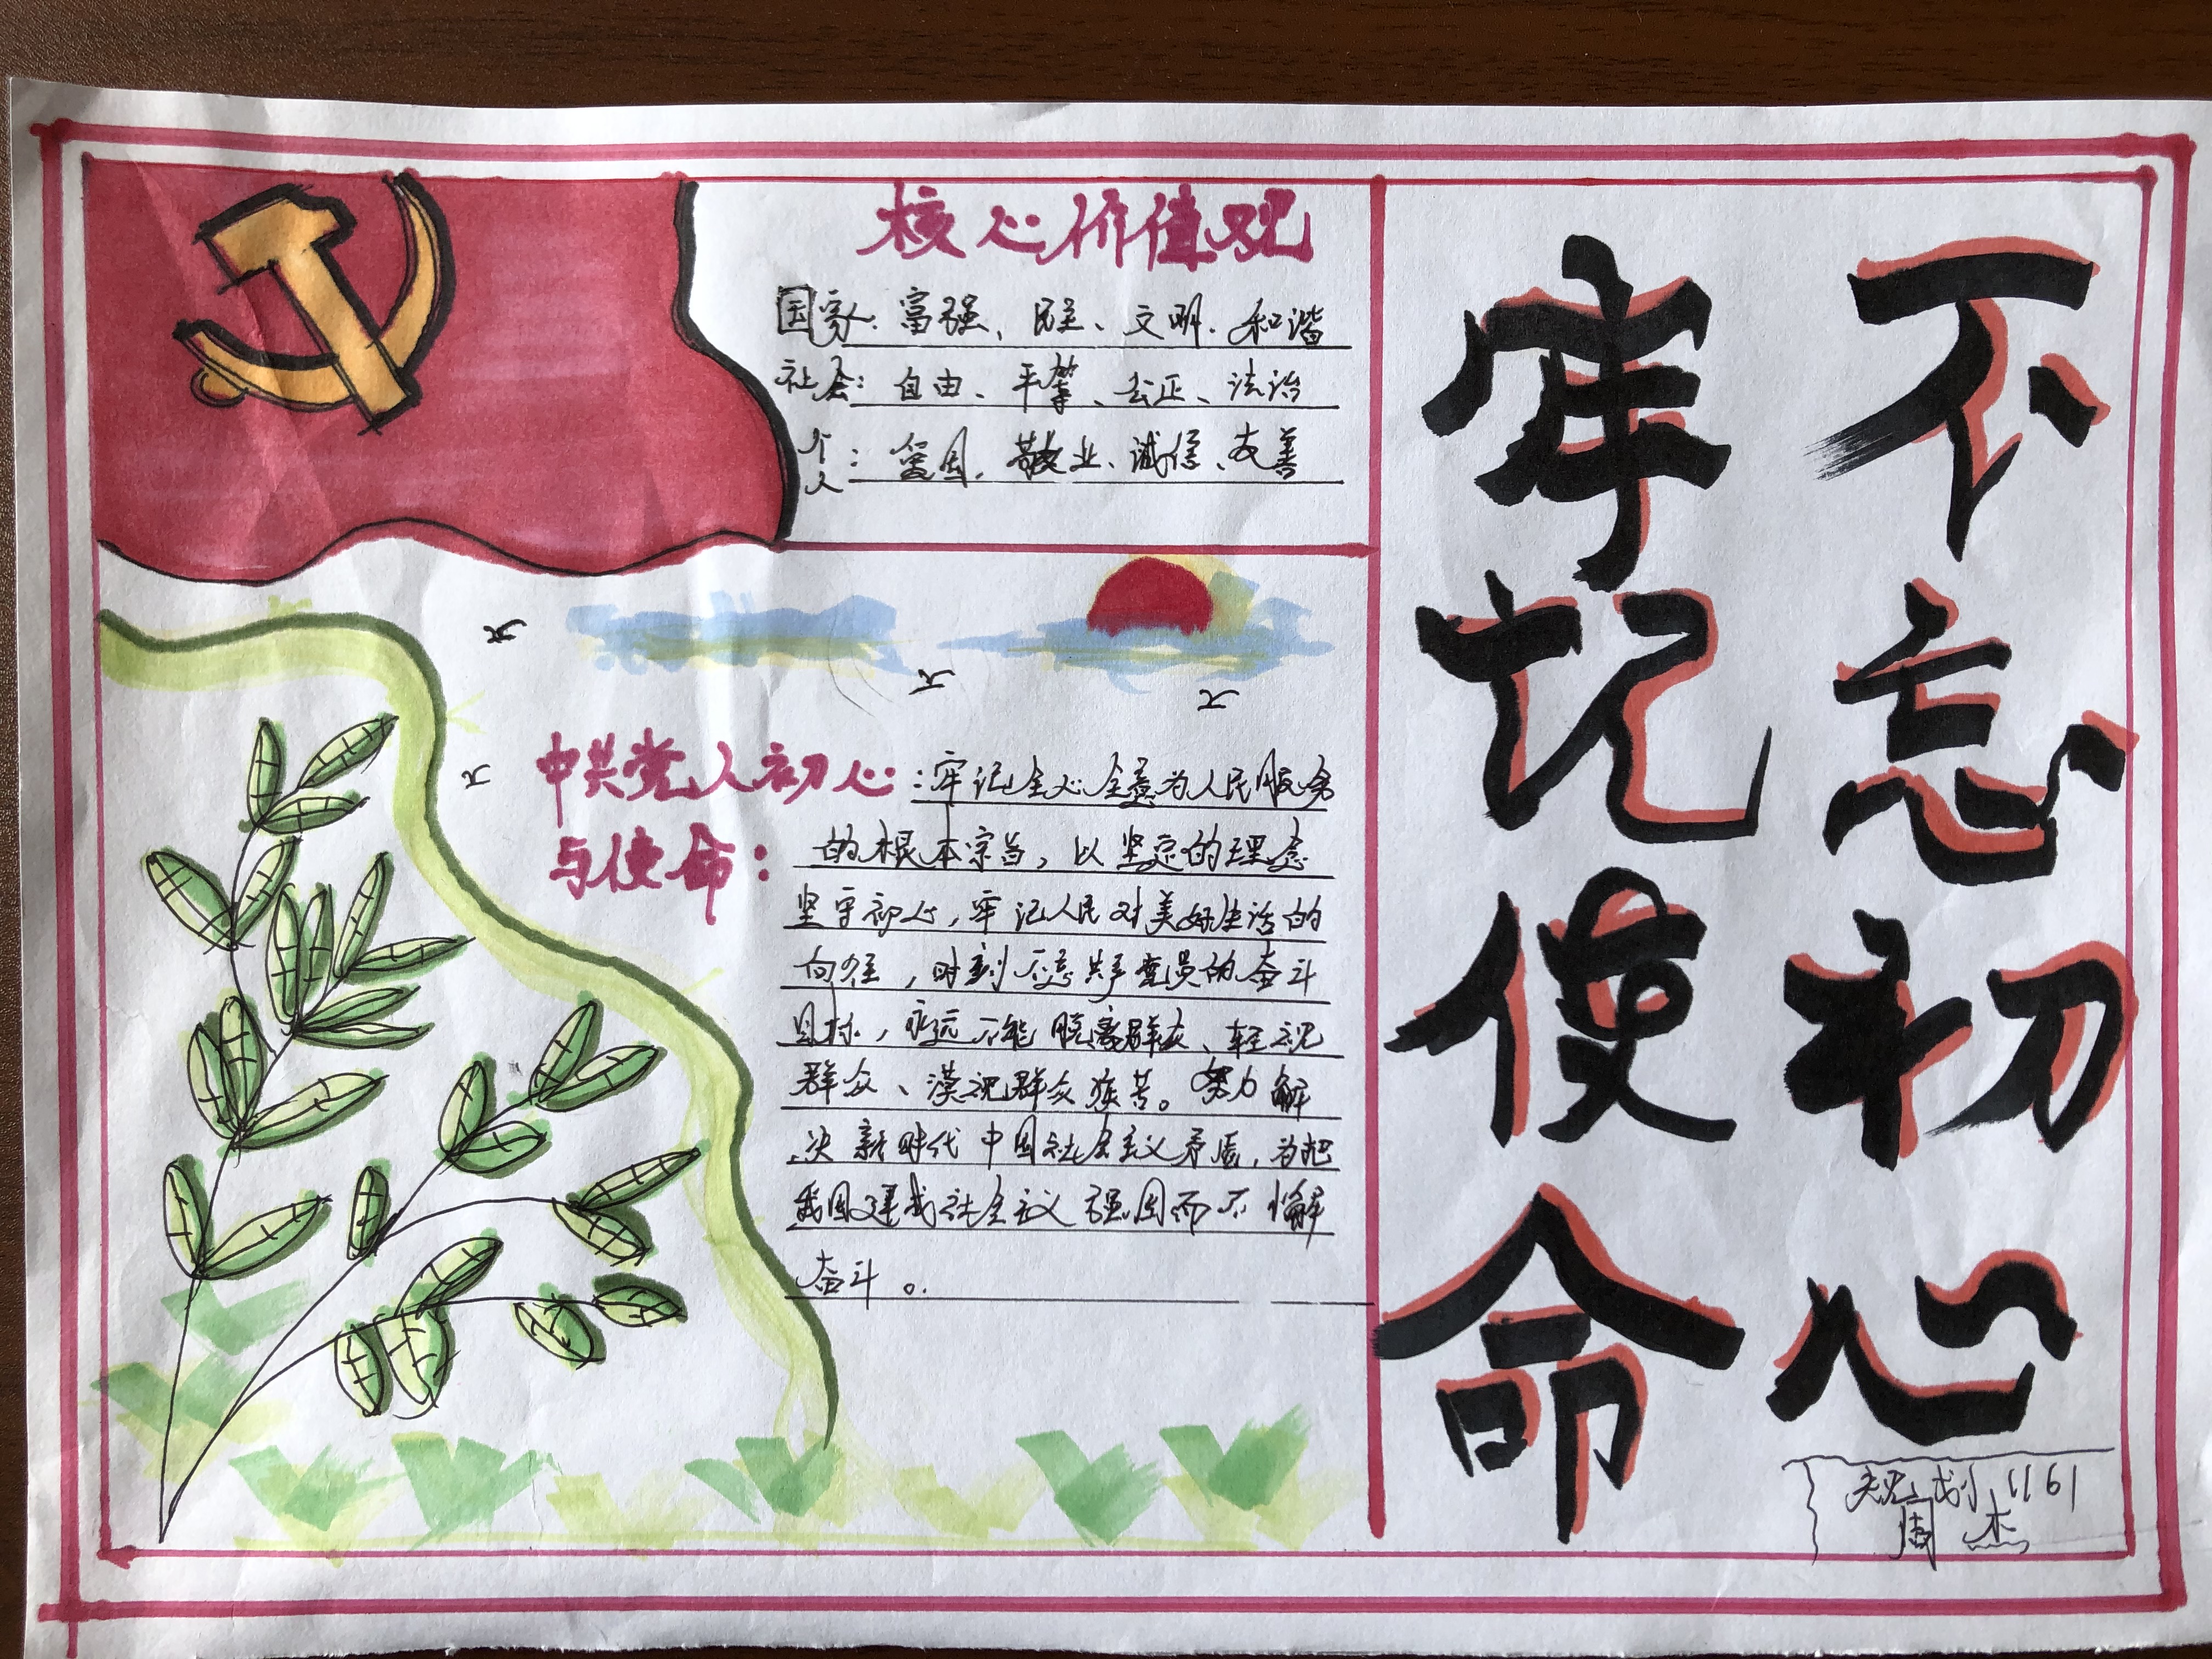 不忘初心
牢记使命
核心价值观
国家：富强、民主、文明、和谐
社会：自由、平等、公正、法治
个人：爱国、敬业、诚信、友善
中共党人初心：牢记全心全意为人民服务
与使命：的根本宗旨，以坚定的理念
坚守初心，牢记人民对美好生活的
向往，时刻不忘共产党员的奋斗
目标，永远不能脱离群众、轻视
群众、漠视群众疾苦。努力解
决新时代中国社会主义矛盾，为把
我国建成社会主义强国而不懈
奋斗。
规划1161
周杰